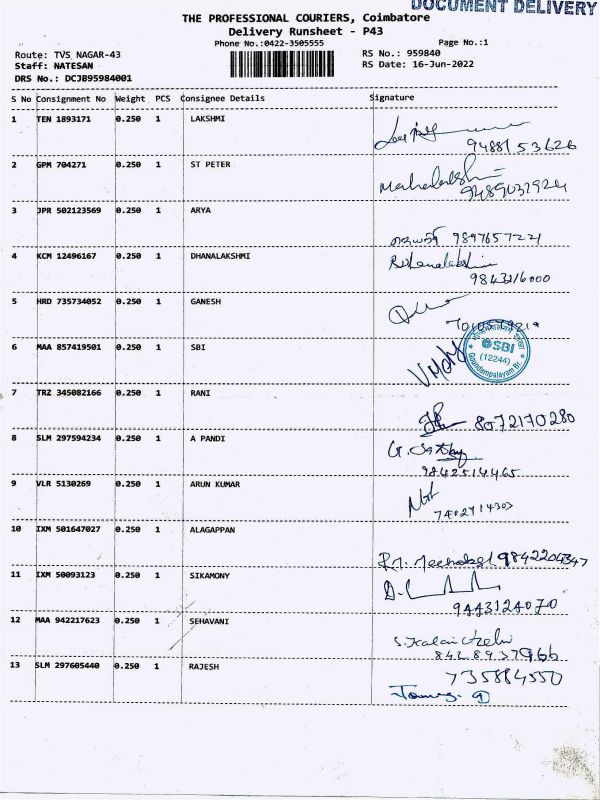 DOCUMENT DELIVERY
THE PROFESSIONAL COURIERS, Coimbatore
Delivery Runsheet - P43
Phone No.:0422-3505555
Page No.:1
Route: TVS NAGAR-43
RS No.: 959840
Staff: NATESAN
RS Date: 16-Jun-2022
DRS No.: DCJB95984001
S No Consignment No Weight PCS Consignee Details Signature
1 TEN 1893171 0.250 1 LAKSHMI
9488153626
2 GPM 704271 0.250 1 ST PETER
Mahalakshmi
9489031924
3 JPR 502123569 0.250 1 ARYA
9897657221
4 KCM 12496167 0.250 1 DHANALAKSHMI
9843216000
5 HRD 735734052 0.250 1 GANESH
6 MAA 857419501 0.250 1 SBI
SBI
(12244)
Goundampalayam Br.
7 TRZ 345082166 0.250 1 RANI
8072170280
8 SLM 297594234 0.250 1 A PANDI
9842514465
9 VLR 5130269 0.250 1 ARUN KUMAR
7402914303
10 IXM 501647027 0.250 1 ALAGAPPAN
9842204347
11 IXM 50093123 0.250 1 SIKAMONY
9443124070
12 MAA 942217623 0.250 1 SEHAVANI
S. Kalai Chelvi
8428937966
13 SLM 297605440 0.250 1 RAJESH
735884550